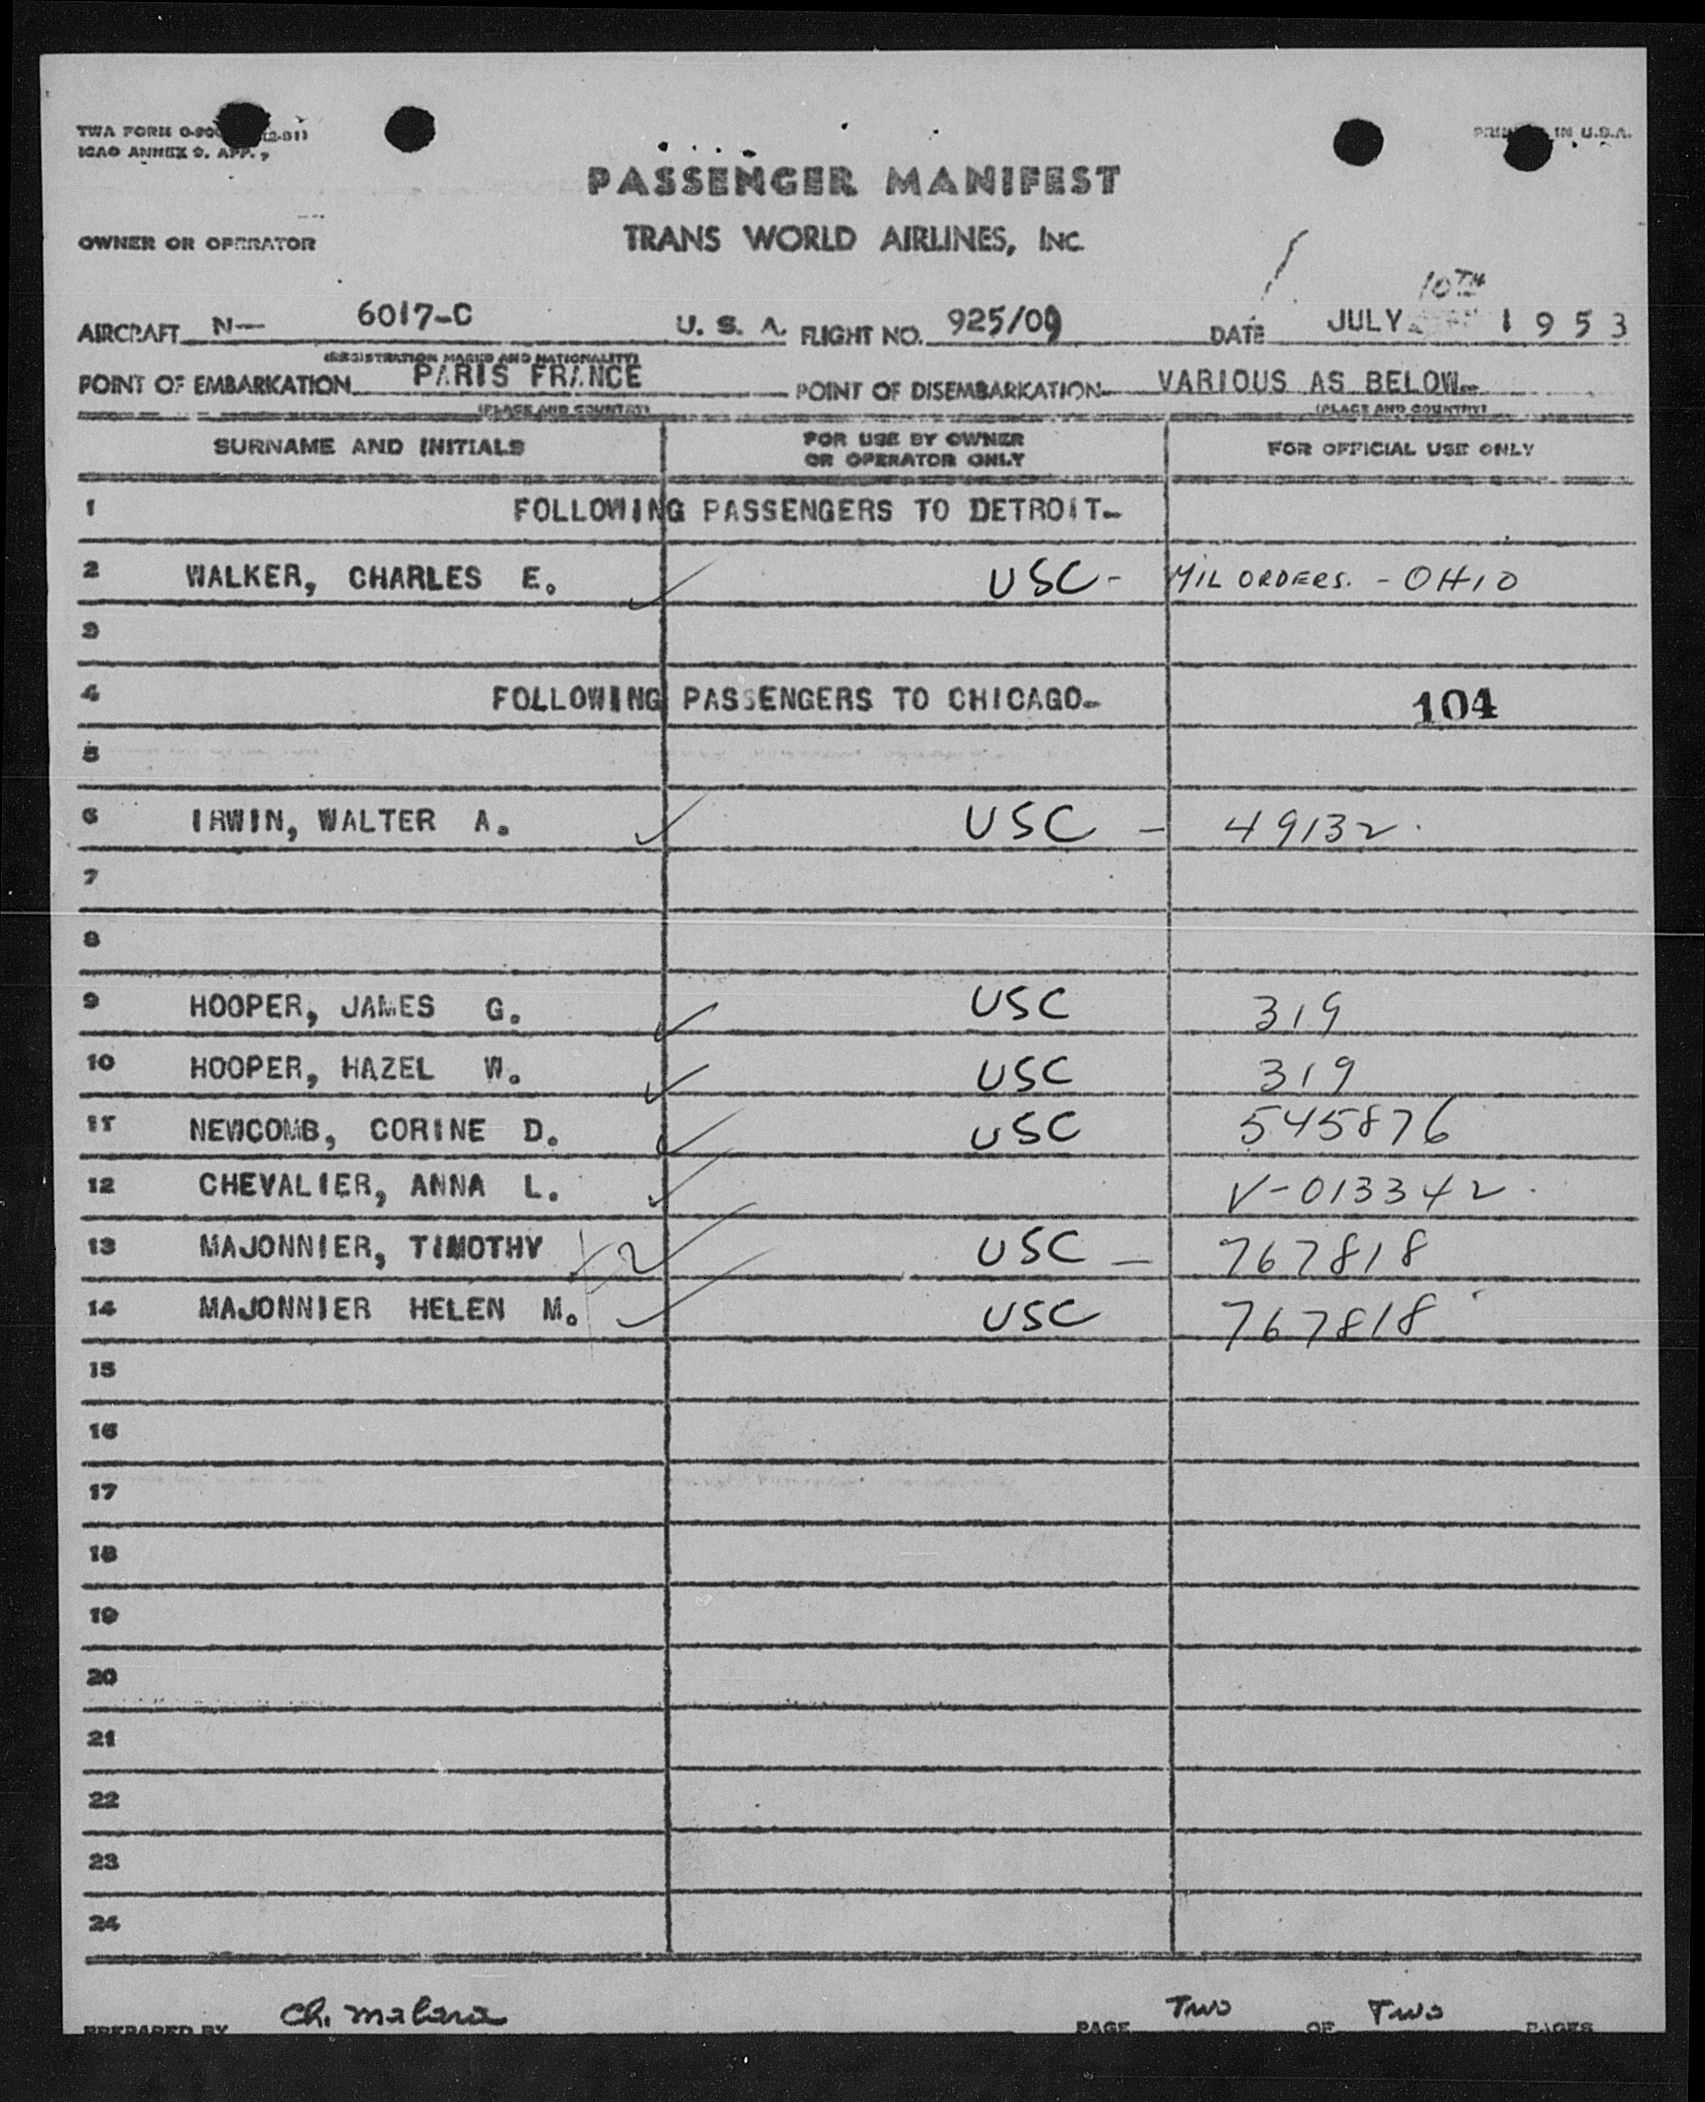 TWA FORM
ICAO ANNEX 9. APP.
IN U.S.A.
PASSENGER MANIFEST
OWNER OR OPERATOR TRANS WORLD AIRLINES, INC
10TH
AIRCRAFT N— 6017-C U. S. A. FLIGHT NO. 925/09 DATE JULY 1953
(REGISTRATION MARKS AND NATIONALITY)
POINT OF EMBARKATION PARIS FRANCE POINT OF DISEMBARKATION VARIOUS AS BELOW-
(PLACE AND COUNTRY) (PLACE AND COUNTRY)
SURNAME AND INITIALS FOR USE BY OWNER OR OPERATOR ONLY FOR OFFICIAL USE ONLY
1 FOLLOWING PASSENGERS TO DETROIT-
2 WALKER, CHARLES E. ✓ USC - MIL ORDERS. - OHIO
3
4 FOLLOWING PASSENGERS TO CHICAGO- 104
5
6 IRWIN, WALTER A. ✓ USC - 49132.
7
8
9 HOOPER, JAMES G. ✓ USC 319
10 HOOPER, HAZEL W. ✓ USC 319
11 NEWCOMB, CORINE D. ✓ USC 545876
12 CHEVALIER, ANNA L. ✓ V-013342.
13 MAJONNIER, TIMOTHY 2 ✓ USC - 767818
14 MAJONNIER HELEN M. ✓ USC 767818
15
16
17
18
19
20
21
22
23
24
PREPARED BY Ch. Malara PAGE Two OF Two PAGES